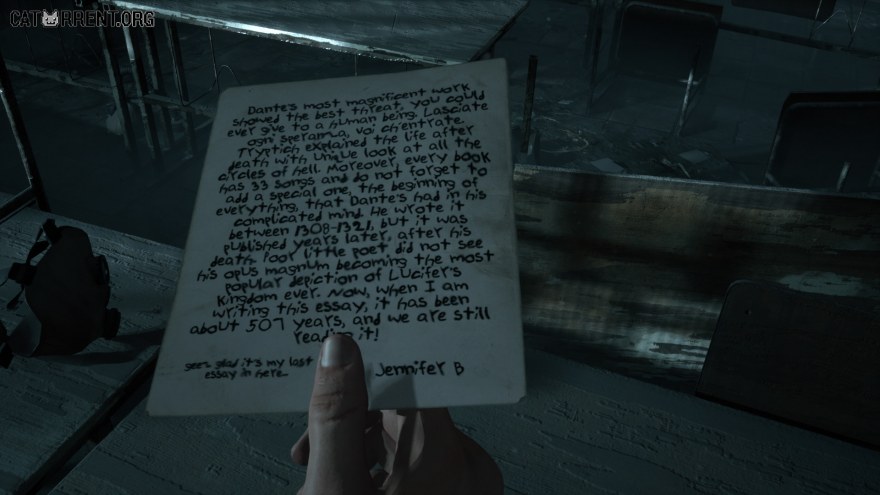 CATORRENT.ORG
Dante's most magnificent work
showed the best threat, you could
ever give to a human being. Lasciate
ogni speranza, voi ch'entrate.
Tryptich explained the life after
death with unique look at all the
circles of hell. Moreover, every book
has 33 songs and do not forget to
add a special one, the beginning of
everything, that Dante's had in his
complicated mind. He wrote it
between 1308-1321, but it was
published years later, after his
death. Poor little poet did not see
his opus magnum becoming the most
popular depiction of Lucifer's
kingdom ever. Now, when I am
writing this essay, it has been
about 507 years, and we are still
reading it!
glad it's my last
essay in here...
Jennifer B